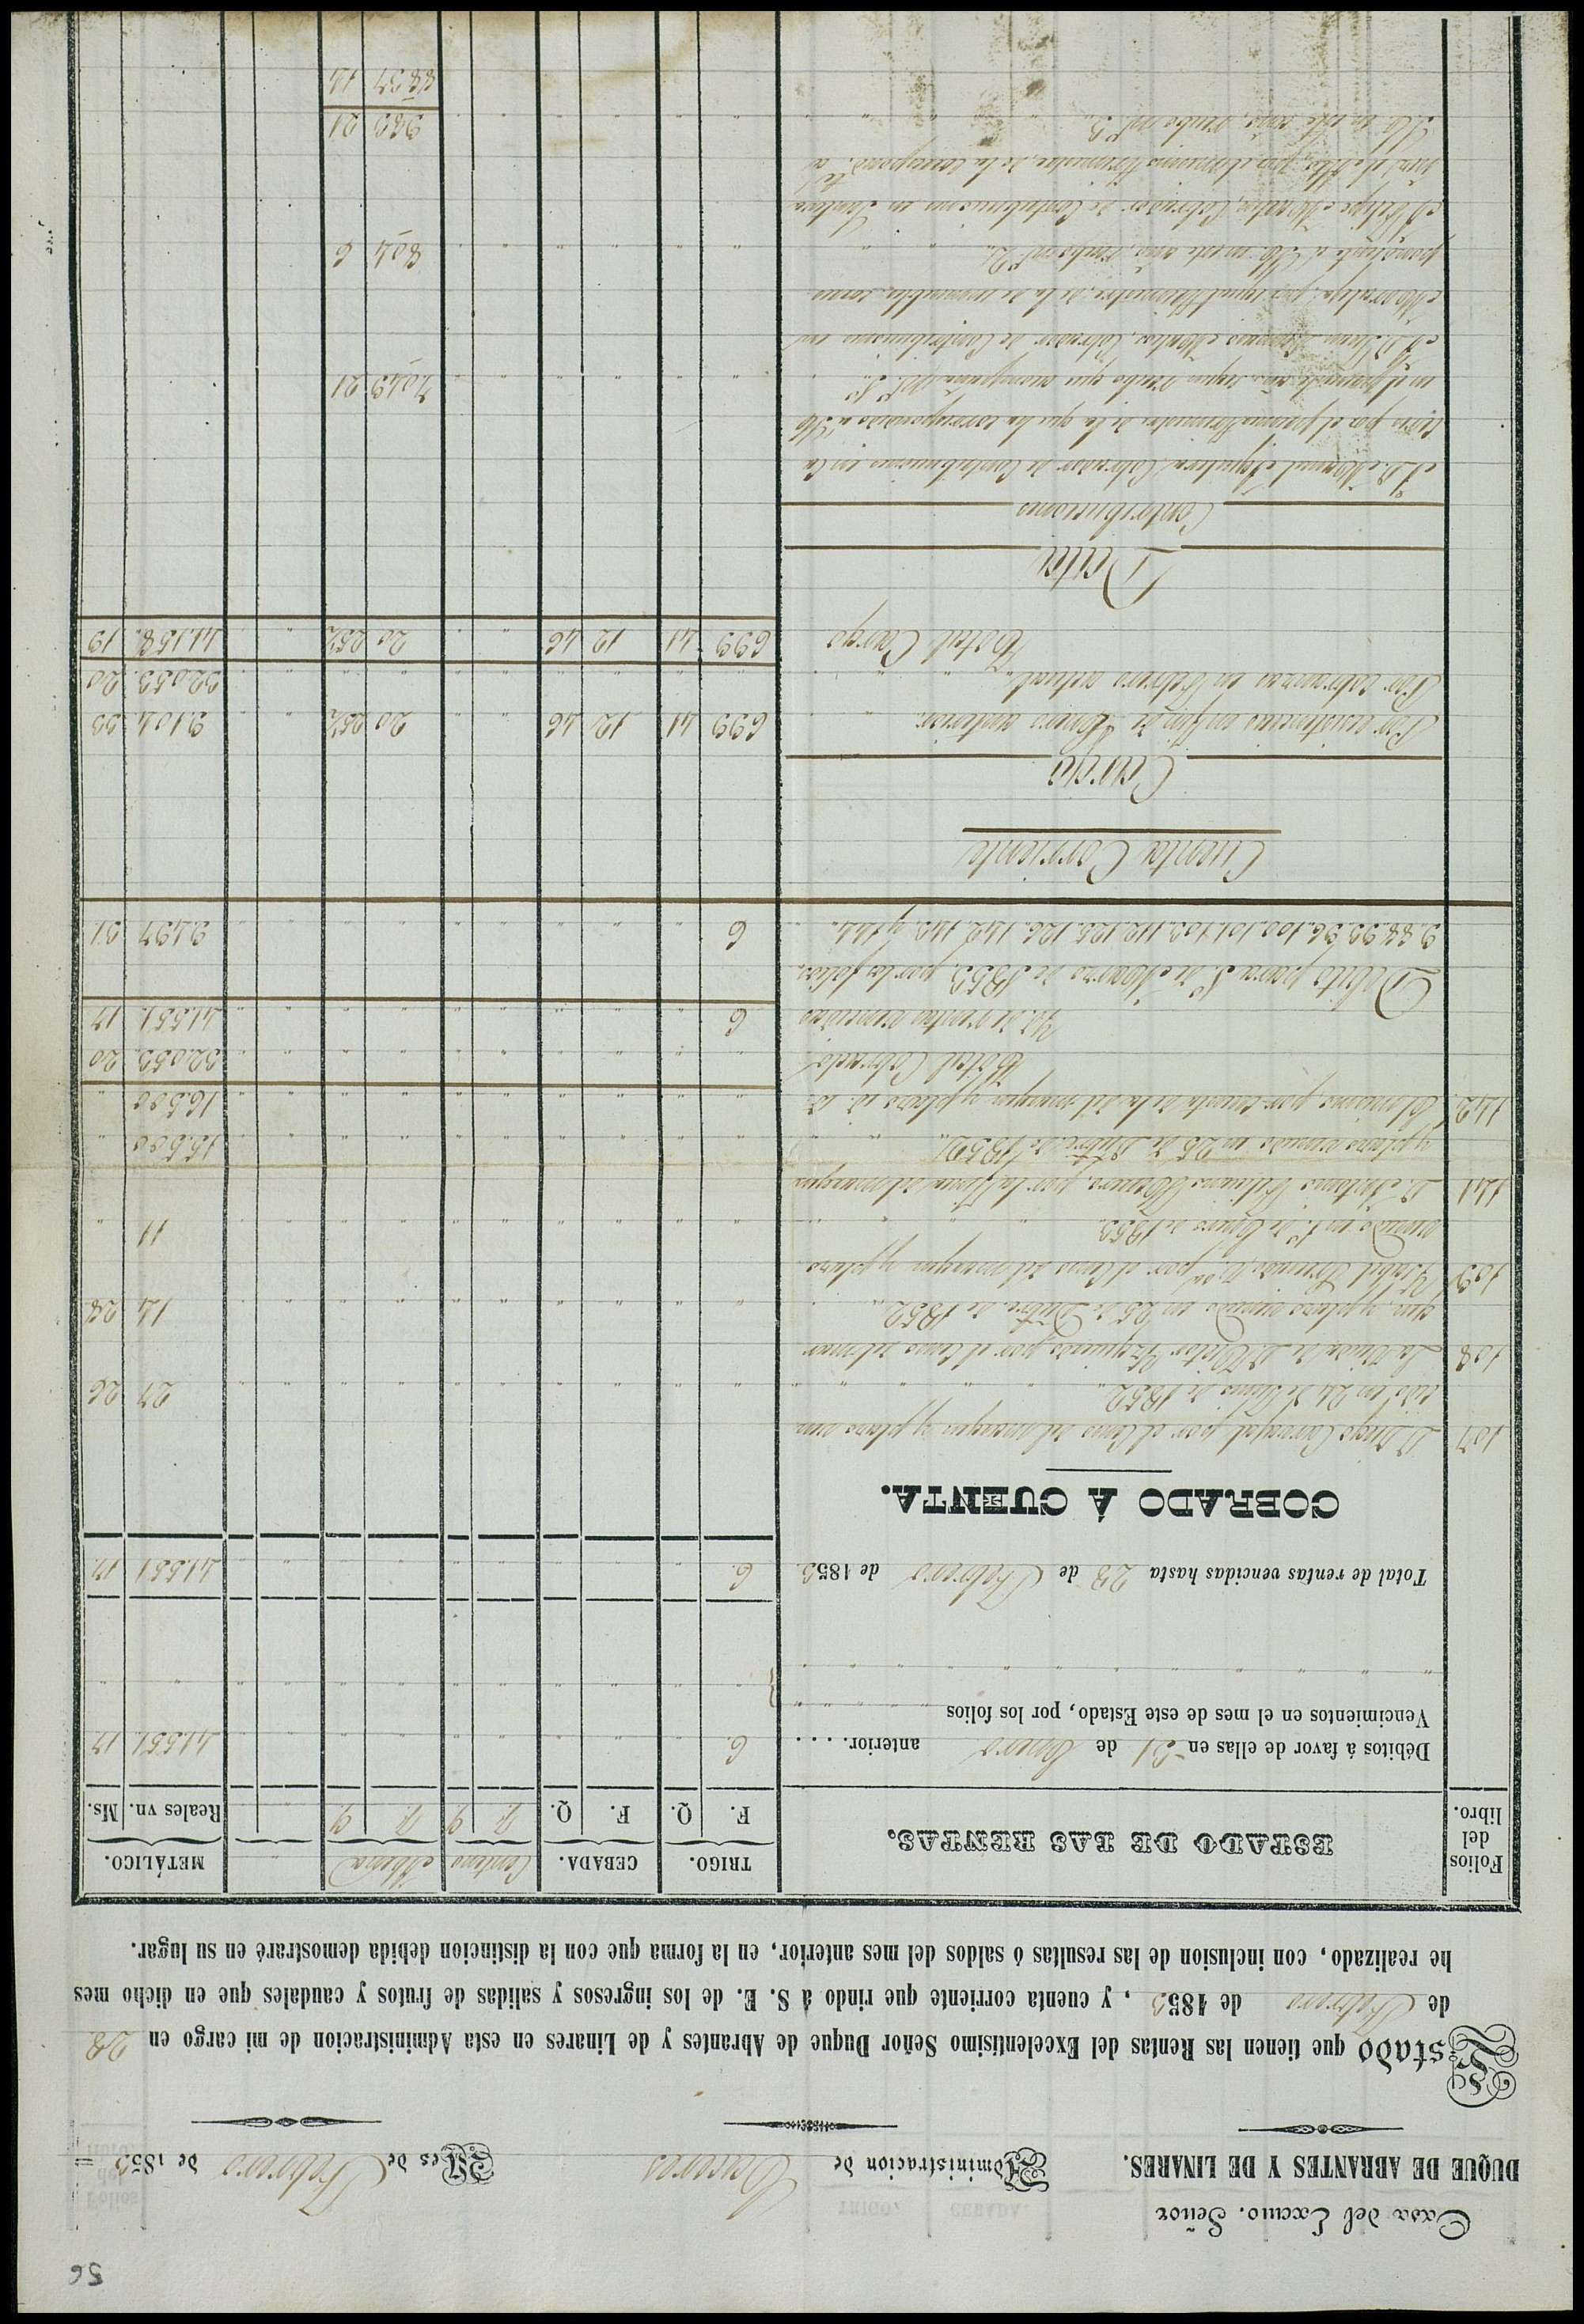 56
Casa del Excmo. Señor
DUQUE DE ABRANTES Y DE LINARES.
Administracion de Caceres
Mes de Febrero de 1853 =
Estado que tienen las Rentas del Excelentisimo Señor Duque de Abrantes y de Linares en esta Administracion de mi cargo en 28
de Febrero de 1853, y cuenta corriente que rindo á S. E. de los ingresos y salidas de frutos y caudales que en dicho mes
he realizado, con inclusion de las resultas ó saldos del mes anterior, en la forma que con la distincion debida demostraré en su lugar.
Folios del libro. ESTADO DE LAS RENTAS. TRIGO. CEBADA. Centeno METÁLICO.
F. Q. F. Q. F. Q F. Q Reales vn. Ms.
Débitos á favor de ellas en 31 de Enero anterior. . . . 6. 41.551. 17
Vencimientos en el mes de este Estado, por los folios
Total de rentas vencidas hasta 28 de Febrero de 1853. 6. 41.551 17.
COBRADO Á CUENTA.
107 D. Diego Carvajal por el Censo del margen y plazo ven
cido en 24 de Junio de 1852 27 26
108 La Viuda de D. Victor Izquierdo por el Censo del mar
gen y plazo vencido en 25 de Dizbre. de 1852 14 28
109 Isabel por el Censo del margen y plazo
vencido en 1º de Enero de 1853 11 "
141 D. Antonio por la del margen
y plazo vencido en 25 de Dizbre. de 1852 15.500 "
142 El mismo por cuenta de la del margen y plazo id. id. 16.500 "
Total Cobrado 32.053. 20
Yd. de rentas vencidas 6 41.551. 17
Débito para 1º de Marzo de 1853, por los folios,
9.497 31
6
Cuenta Corriente
Cargo
Por existencias en fin de Enero anterior. 699 41 12 46 20 25½ 9.104. 33
Por cobranzas en Febrero actual. 32.053. 20
Total Cargo 699 41 12 46 20 25½ 41.158. 19
Data
Contribuciones
A D. Manuel Aguilera, Cobrador de Contribuciones en Ca
ceres por el primer trimestre de la que ha correspondido á
en el presente año segun recibo que acompaña nº 1º 7.049 21
A D. Juan Montes, Cobrador de Contribuciones en
por igual trimestre, de la de inmuebles, corres
pondiente á en este año, recibo nº 2. 804 6
A Felipe Cobrador de Contribuciones en
por el mismo trimestre, de la correspondte. á
en este año, recibo nº 3. 983 21